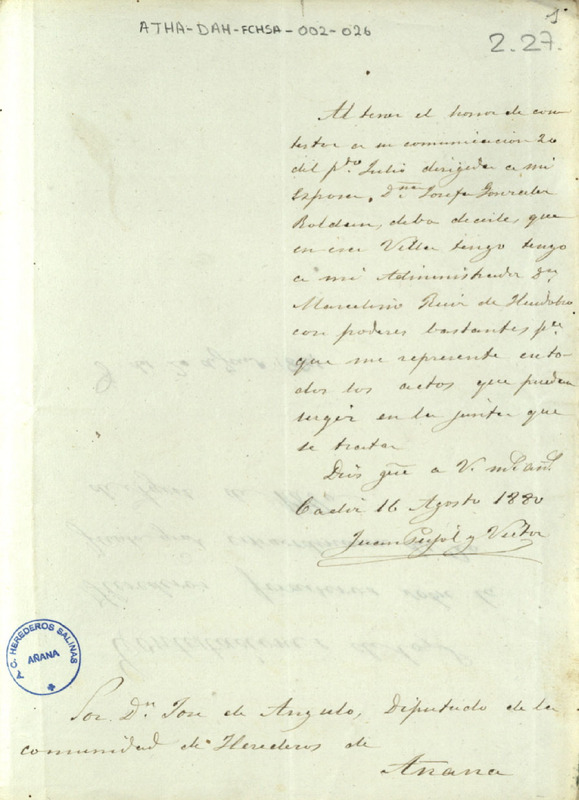 1
ATHA-DAH-FCHSA-002-026
2.27.
Al tener el honor de con
testar a su comunicacion 20
del pdo Julio dirigida a mi
Esposa, Dña Josefa Gonzalez
Roldan, debo decirle, que
en esa Villa tengo tengo
a mi Administrador Dn
Marcelino Ruiz de Huidobro
con poderes bastantes pa
que me represente en to
dos los actos que puedan
surgir en la junta que
se trata
Dios gue a V. ms as
Cadiz 16 Agosto 1880
Juan Pujol y Victor
A. C. HEREDEROS SALINAS
AÑANA
Sor. Dn Jose de Angulo, Diputado de la
comunidad de Herederos de
Anana